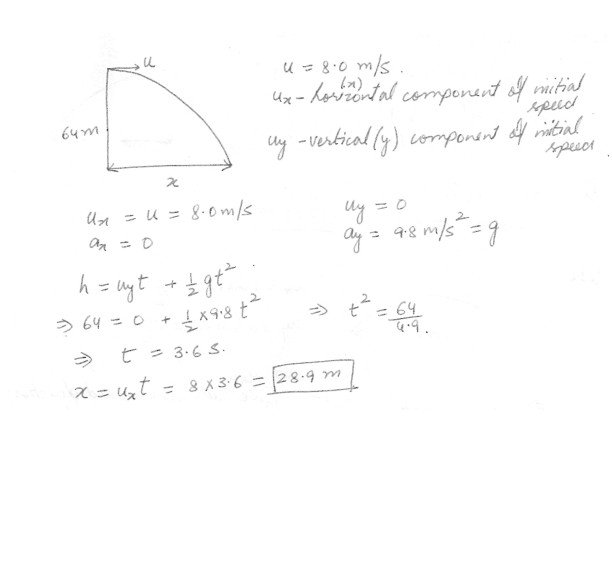 u
64m
x
u = 8.0 m/s.
(x)
ux - horizontal component of initial speed
uy - vertical (y) component of initial speed.
ux = u = 8.0 m/s
ax = 0
uy = 0
ay = 9.8 m/s² = g
h = uyt + 1/2 gt².
⇒ 64 = 0 + 1/2 × 9.8 t²
⇒ t² = 64/4.9.
⇒ t = 3.6 s.
x = uxt = 8 × 3.6 = 28.9 m